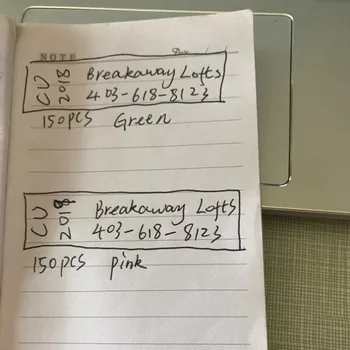 NOTE Date
CU 2018
Breakaway Lofts
403-618-8123
150pcs Green
CU 2018
Breakaway Lofts
403-618-8123
150pcs pink